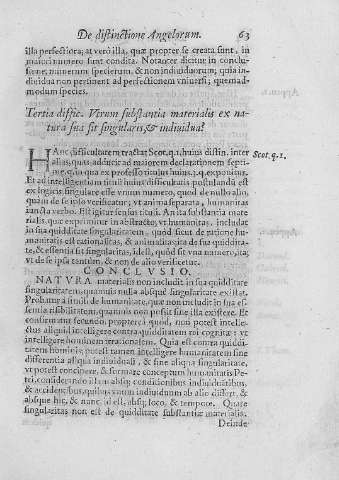 De distinctione Angelorum. 63
illa perfectiora; at verò illa, quæ propter se creata sunt, in
maiori numero sunt condita. Notanter dicitur in conclu-
sione; numerum specierum, & non indiuiduorum; quia in-
diuidua non pertinent ad perfectionem vniuersi; quemad-
modum species.
Tertia diffic. Vtrum substantia materialis ex na-
tura sua sit singularis, & indiuidua?
HAnc difficultatem tractat Scot. q. 1. huius distin. inter
Scot. q. 1.
alias, quas adducit ad maiorem declarationem septi-
mæ, quia quæ ex professo titulus huius. 3. q. exponitur.
Et ad intelligentiam tituli huius difficultatis postulandū est
ex logicis singulare esse vnum numero, quod de nullo alio,
quam de se ipso verificatur; vt anima separata, humanitas
iuncta verbo. Est igitur sensus tituli. An ita substantia mate-
rialis, quæ exprimitur in abstracto, vt humanitas, includat
in sua quidditate singularitatem, quòd sicut de ratione hu-
manitatis est rationalitas, & animalitas ita de sua quiddita-
te, & essentia sit singularitas, idest, quòd sit vna numero, ita,
vt de se ipsa tantùm, & non de alio verificetur.
CONCLVSIO.
NATVRA materialis non includit in sua quidditate
singularitatem, quamuis nulla absque singularitate existat.
Probatur à simili de humanitate, quæ non includit in sua es-
sentia risibilitatem, quamuis non possit sine illa existere. Et
confirmatur secundò propterea quod, non potest intelle-
ctus aliquid intelligere contra quidditatem rei cognitæ: vt
intelligere hominem irrationalem. Quia est contra quiddi-
tatem hominis, potest tamen intelligere humanitatem sine
differentia aliqua indiuiduali, & sine aliqua singularitate,
vt potest concipere, & formare conceptum humanitatis Pe-
tri, considerando illam absque conditionibus indiuiduntibus,
& accidentibus, quibus vnum indiuiduum ab alio differt, &
absque hic, & nunc, id est, absque loco, & tempore. Quare
singularitas non est de quidditate substantiæ materialis.
Deinde